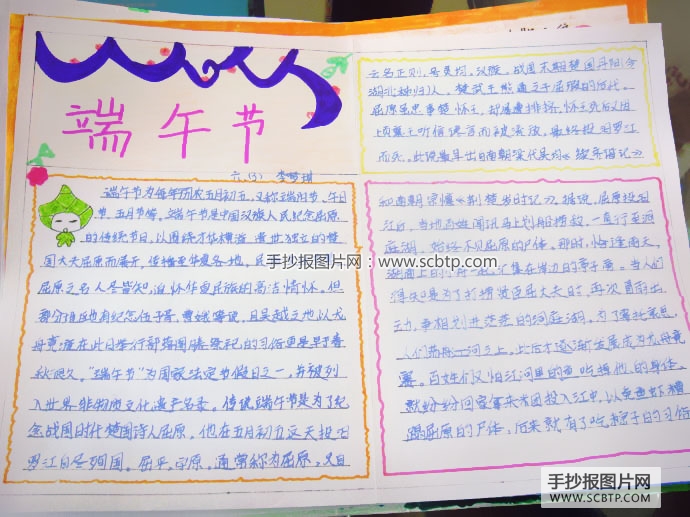 端午节
六.(3)
端午节为每年历农五月初五,又称端阳节、午日
节、五月节等。端午节是中国汉族人民纪念屈原
的传统节日,以围绕才华横溢、遗世独立的楚
国大夫屈原而展开,传播至华夏各地,民
屈原之名人尽皆知,追怀华夏民族的高洁情怀。但
部分地区也有纪念伍子胥、曹娥等说,且吴越之地以龙
舟竞渡在此日举行部落图腾祭祀的习俗更是早于春
秋很久。"端午节"为国家法定节假日之一,并被列
入世界非物质文化遗产名录。传说端午节是为了纪
念战国时代楚国诗人屈原,他在五月初五这天投汨
罗江自尽殉国。屈平,字原,通常称为屈原,又自
云名正则,号灵均,汉族,战国末期楚国丹阳今
湖北秭归人,楚武王熊通之子屈瑕的后代。
屈原虽忠事楚怀王,却屡遭排挤,怀王死后又因
顷襄王听信谗言而被流放,最终投汨罗江
而死。此说最早出自南朝梁代吴均《续齐谐记》
和南朝宗懔《荆楚岁时记》。据说,屈原投汨
江后,当地百姓闻讯马上划船捞救,一直行至洞
庭湖,始终不见屈原的尸体。那时,恰逢雨天,
湖面上的小舟一起汇集在岸边的亭子旁。当人们
得知是为了打捞贤臣屈大夫时,再次冒雨出
动,争相划进茫茫的洞庭湖。为了寄托哀思,
人们荡舟江河之上,此后才逐渐发展成为龙舟竞
赛。百姓们又怕江河里的鱼吃掉他的身体,
就纷纷回家拿来米团投入江中,以免鱼虾糟
蹋屈原的尸体,后来就有了吃粽子的习俗
手抄报图片网:www.scbtp.com
手抄报图片网
WWW.SCBTP.COM